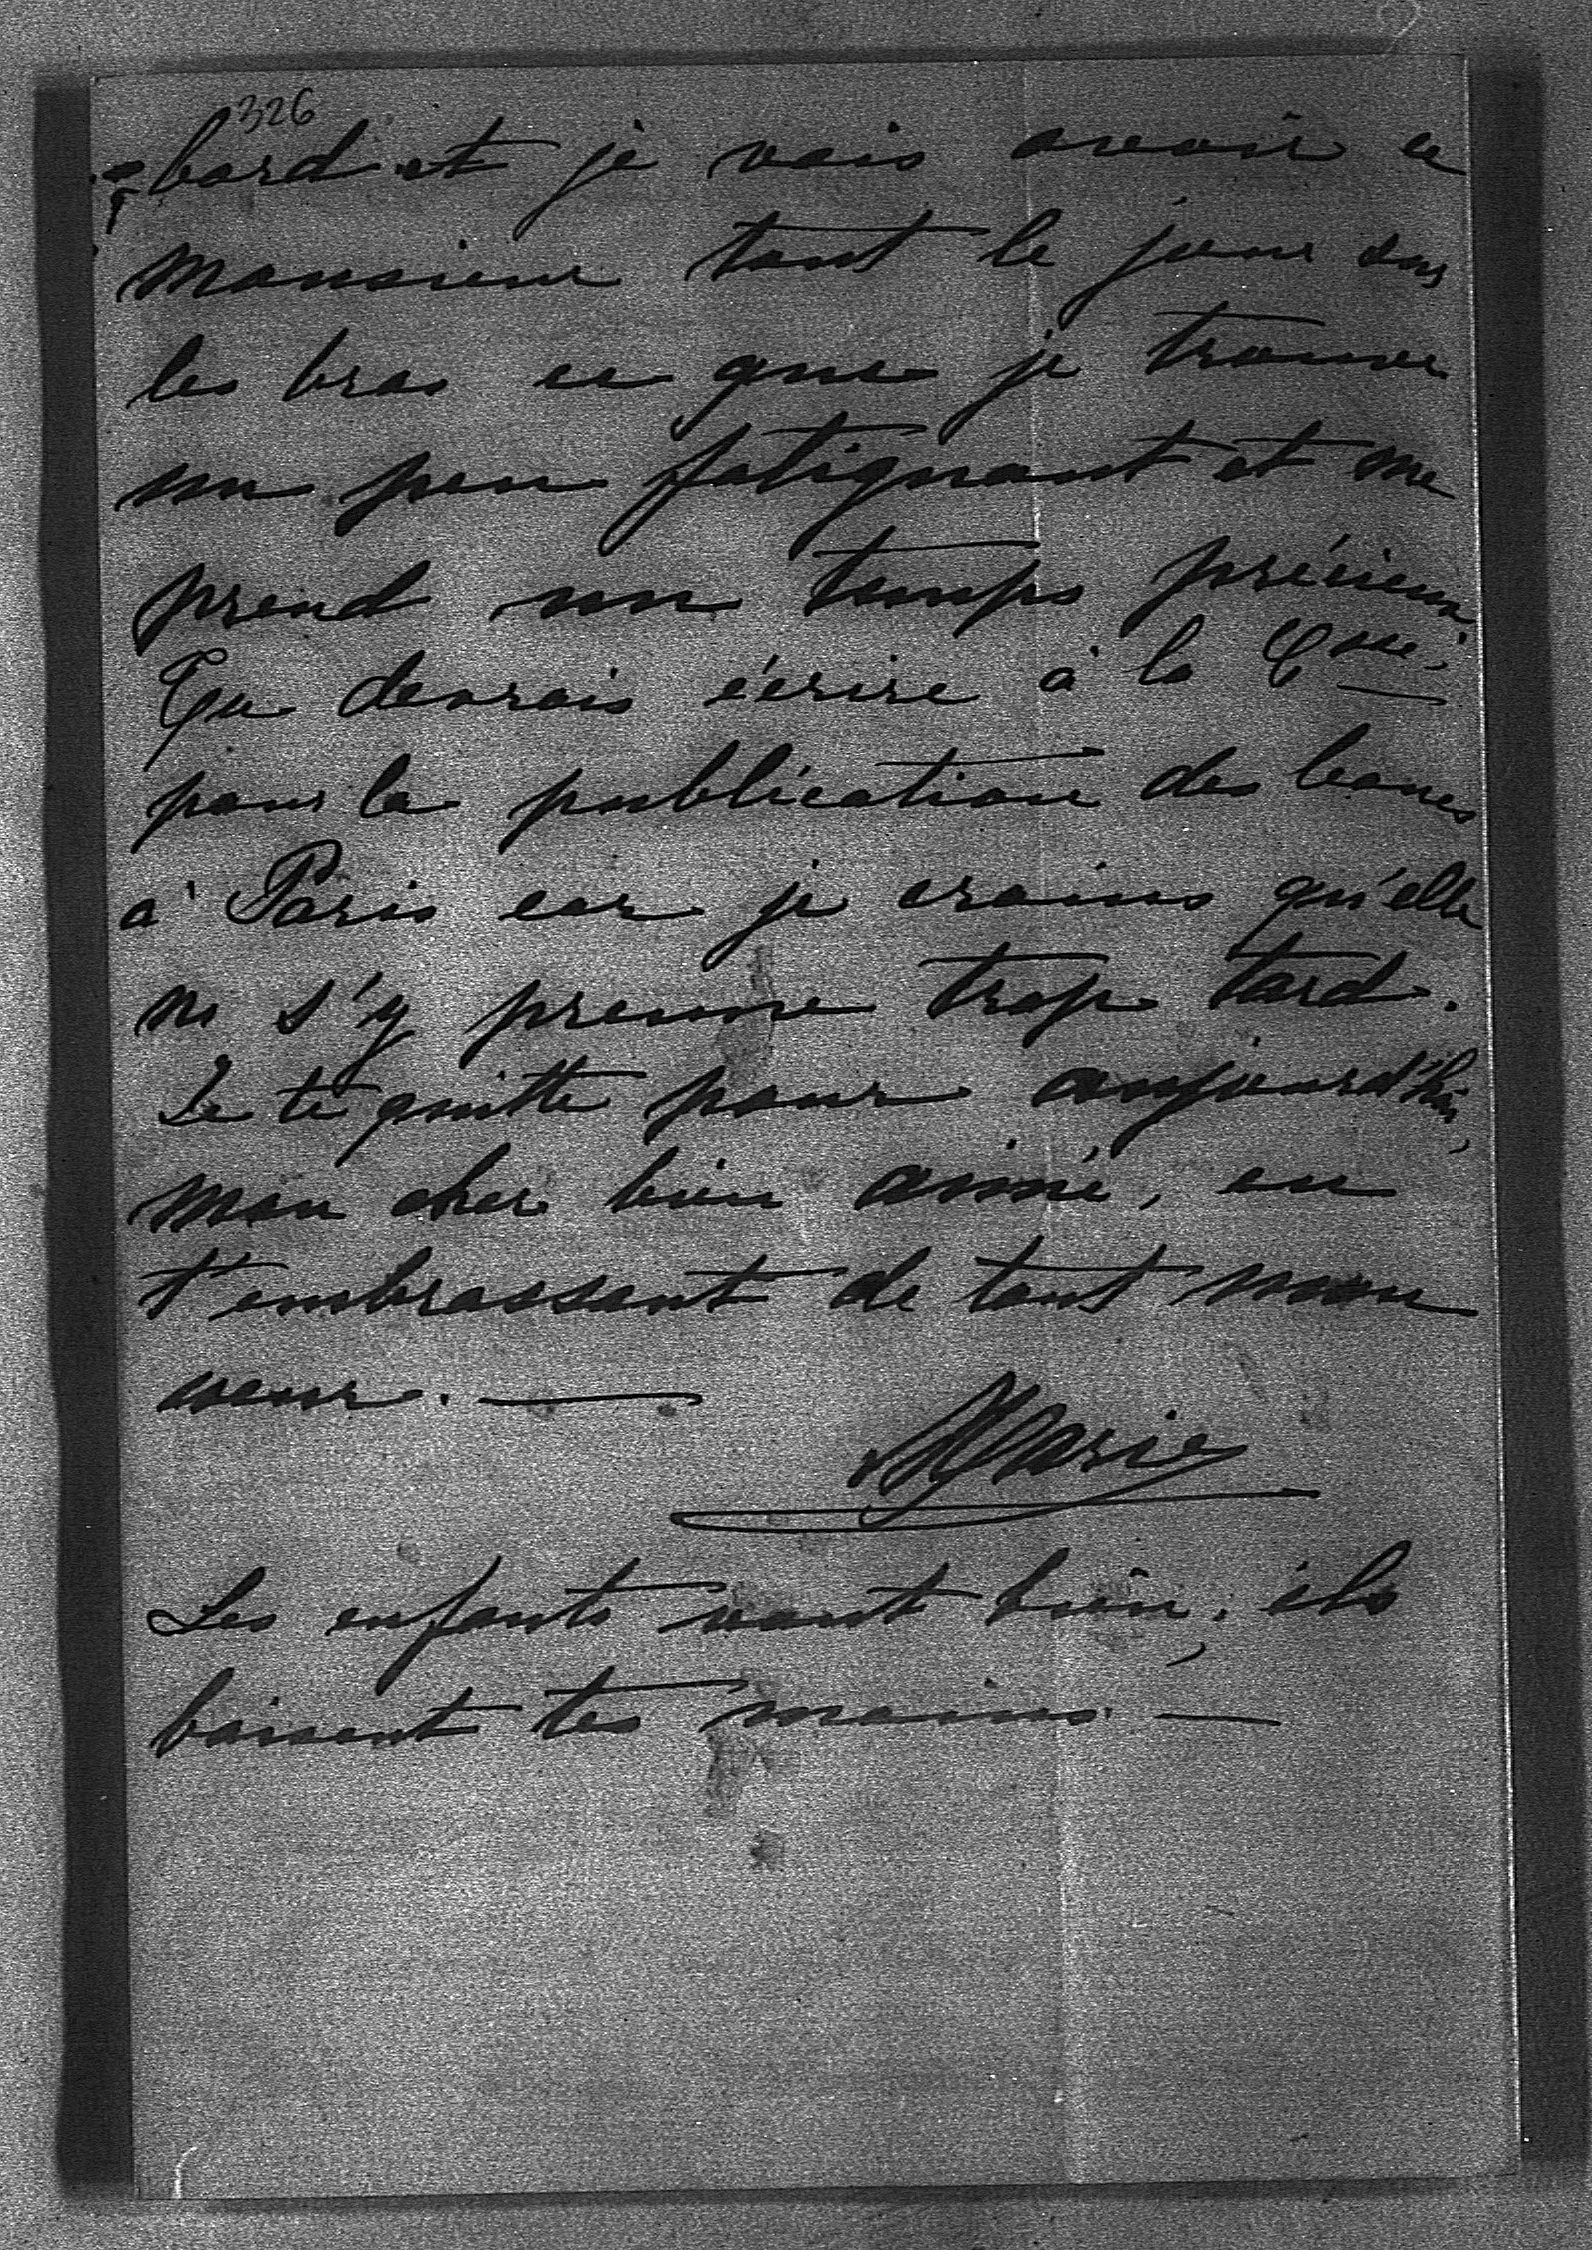 326
bord et je vais avoir ce
monsieur tout le jour sur
les bras ce que je trouve
un peu fatignant et me
prend un temps précieux.
Tu devrais écrire à la Ctesse
pour la publication des bancs
à Paris car je crains qu'elle
ne s'y prenne trop tard.
Je te quitte pour aujourd'hui,
mon cher bien aimé, en
t'embrassant de tout mon
coeur. —
Marie
Les enfants vont bien, ils
baisent tes mains. —